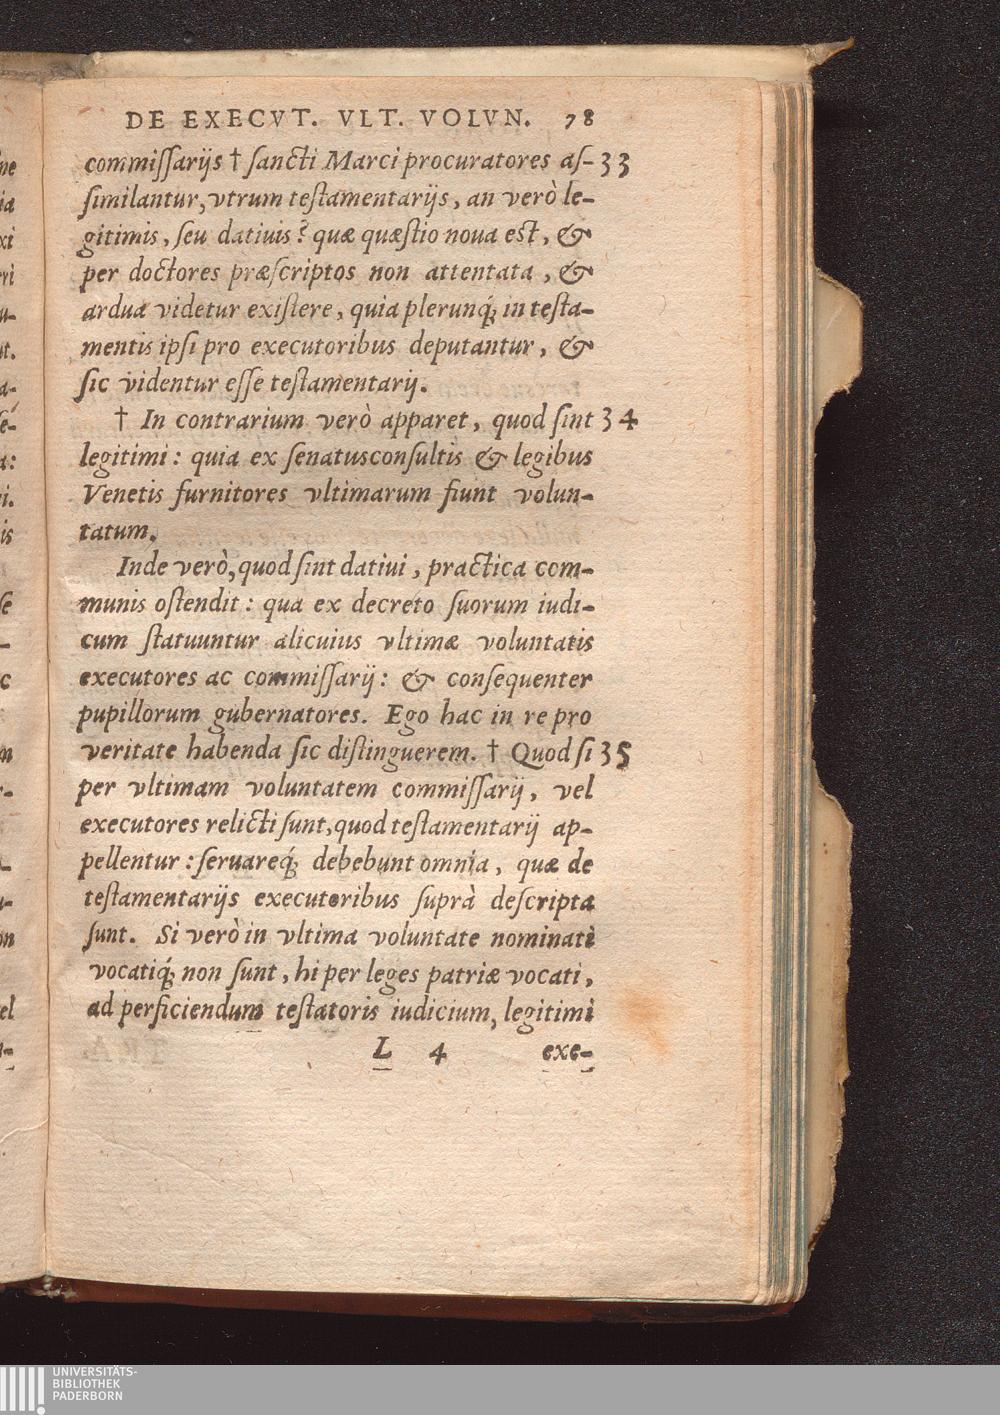 DE EXECVT. VLT. VOLVN. 78
commiſſarijs † ſancti Marci procuratores aſ- 33
ſimilantur, vtrum teſtamentarijs, an verò le-
gitimis, ſeu datiuis? quæ quæſtio noua est, &
per doctores præſcriptos non attentata, &
ardua videtur exiſtere, quia plerunq́; in teſta-
mentis ipſi pro executoribus deputantur, &
ſic videntur eſſe teſtamentarij.
† In contrarium verò apparet, quod ſint 34
legitimi: quia ex ſenatusconſultis & legibus
Venetis furnitores vltimarum fiunt volun-
tatum.
Inde verò, quod ſint datiui, practica com-
munis oſtendit: qua ex decreto ſuorum iudi-
cum ſtatuuntur alicuius vltimæ voluntatis
executores ac commiſſarij: & conſequenter
pupillorum gubernatores. Ego hac in re pro
veritate habenda ſic diſtinguerem. † Quod ſi 35
per vltimam voluntatem commiſſarij, vel
executores relicti ſunt, quod teſtamentarij ap-
pellentur: ſeruareq́; debebunt omnia, quæ de
teſtamentarijs executoribus ſuprà deſcripta
ſunt. Si verò in vltima voluntate nominati
vocatiq́; non ſunt, hi per leges patriæ vocati,
ad perficiendum teſtatoris iudicium, legitimi
L 4 exe-
UNIVERSITÄTS-
BIBLIOTHEK
PADERBORN